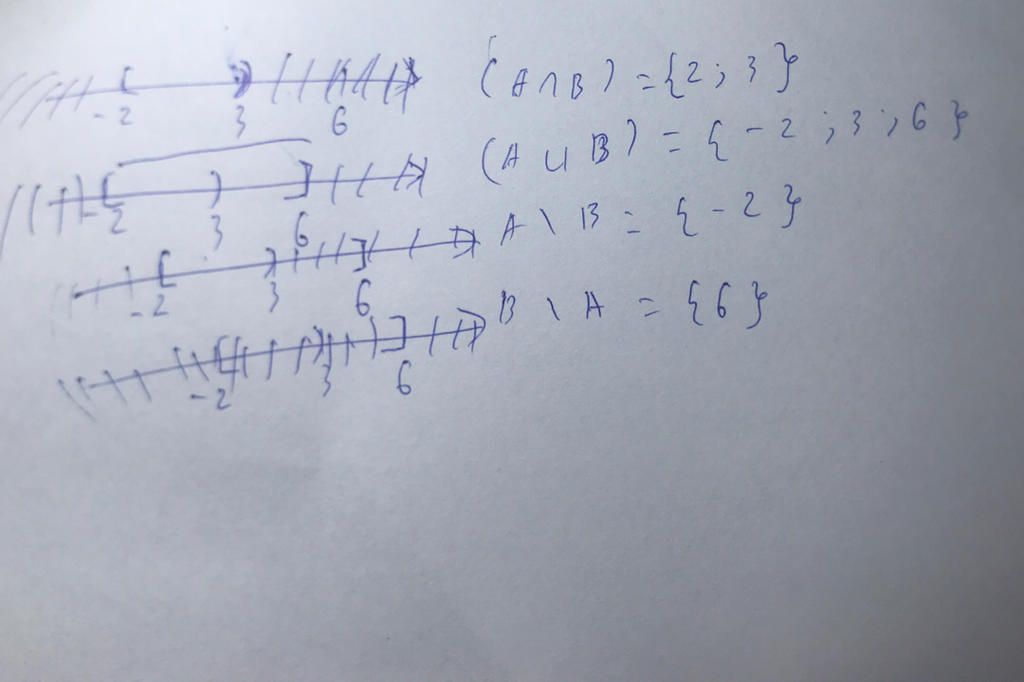 -2 3 6 (A ∩ B) = {2; 3}
-2 3 6 (A ∪ B) = {-2; 3; 6}
-2 3 6 A \ B = {-2}
-2 3 6 B \ A = {6}